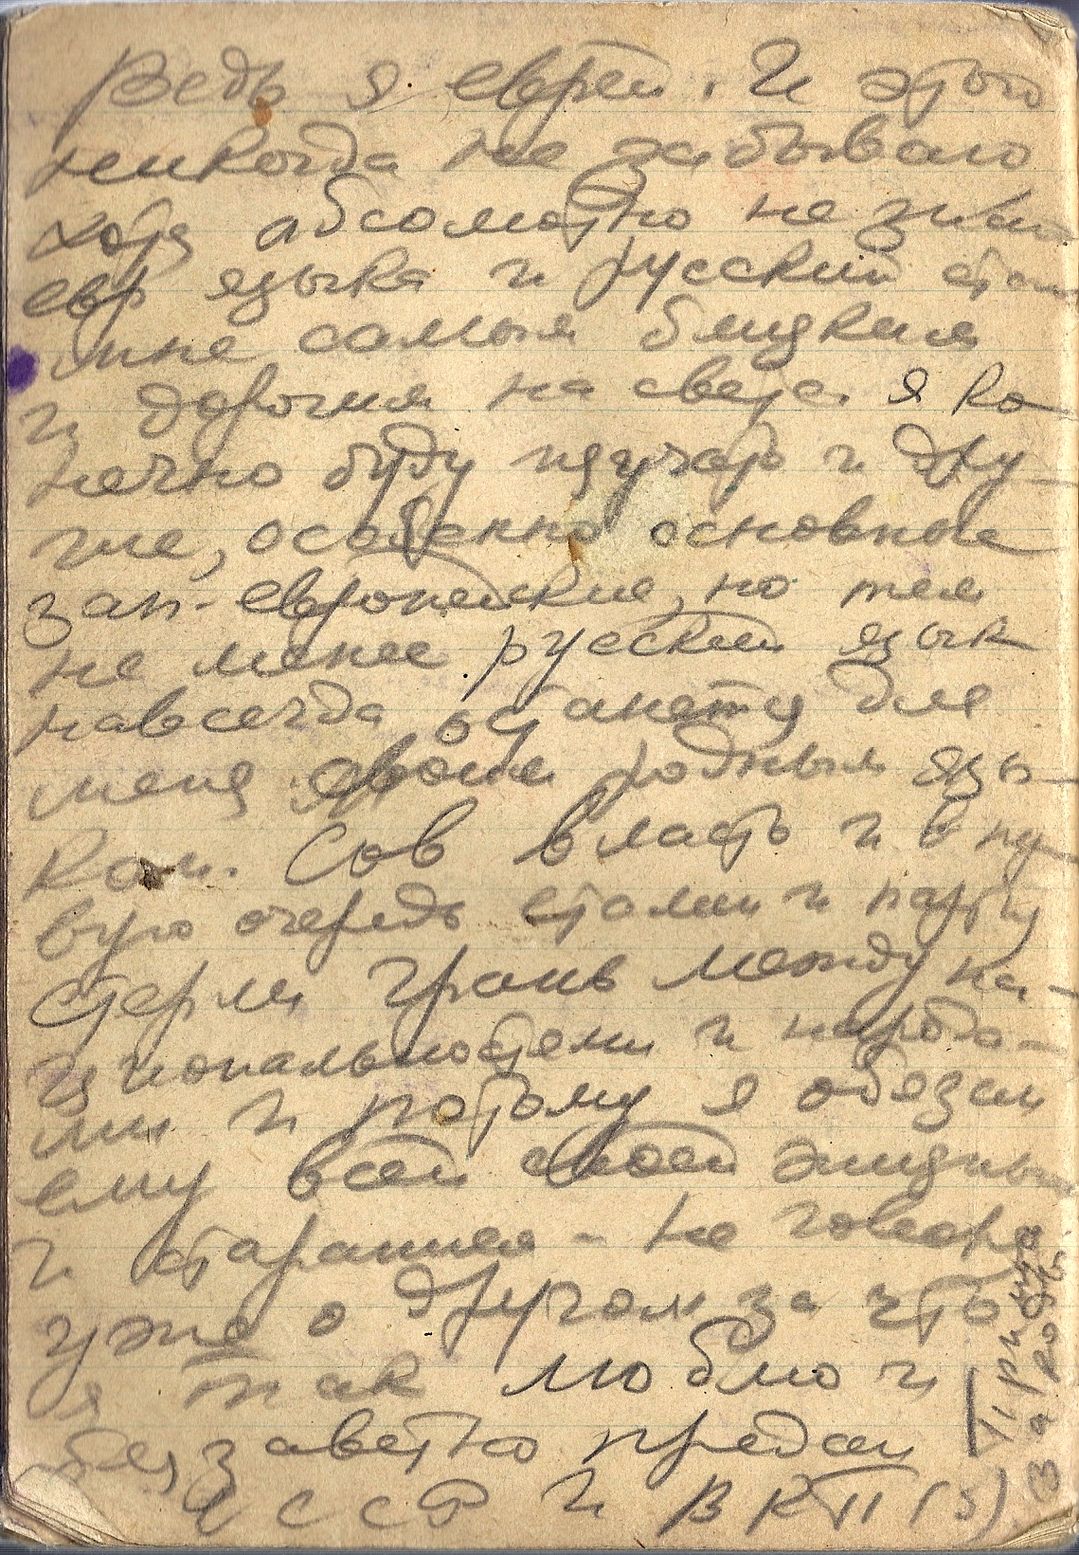 Ведь я еврей. И этого
никогда не забываю
хотя абсолютно не знаю
евр языка и русский стал
мне самым близким
и дорогим на свете. Я ко-
нечно буду изучать и дру-
гие, особенно основные
зап-европейские, но тем
не менее русский язык
навсегда останется для
меня своим родным язы-
ком. Сов власть и в пер-
вую очередь сталин и партия
стерли грань между на-
циональностями и народа-
ми и потому я обязан
ему всей своей жизнью
и старанием - не говоря
уже о другом за что
я так люблю и
беззаветно предан
СССР и ВКП(б)